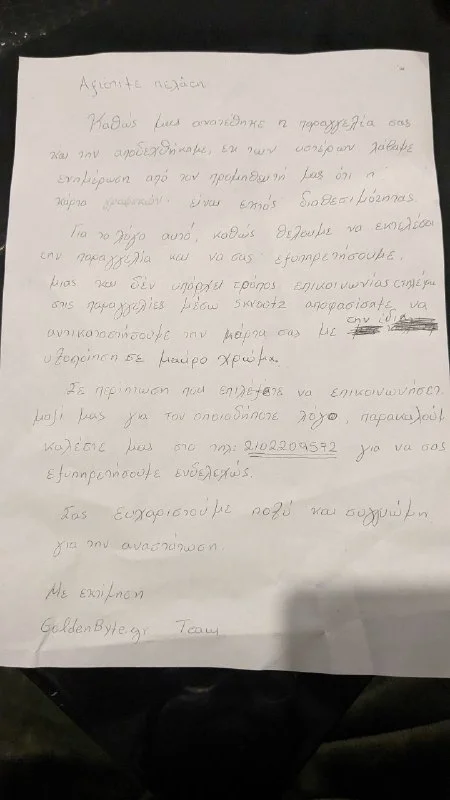 Αξιότιμε πελάτη
Καθώς μας ανατέθηκε η παραγγελία σας
και την αποδεχθήκαμε, εκ των υστέρων λάβαμε
ενημέρωση από τον προμηθευτή μας ότι η
κάρτα γραφικών είναι εκτός διαθεσιμότητας.
Για το λόγο αυτό, καθώς θέλουμε να εκτελέσου
την παραγγελία και να σας εξυπηρετήσουμε,
μιας και δεν υπάρχει τρόπος επικοινωνίας
στις παραγγελίες μέσω skroutz αποφασίσαμε να
αντικαταστήσουμε την κάρτα σας με την ίδια
υλοποίηση σε μαύρο χρώμα.
Σε περίπτωση που επιλέξετε να επικοινωνήσετ
μαζί μας για τον οποιαδήποτε λόγο, παρακαλούμ
καλέστε μας στο τηλ: 2102209572 για να σας
εξυπηρετήσουμε ενδελεχώς.
Σας ευχαριστούμε πολύ και συγγνώμη
για την αναστάτωση.
Με εκτίμηση
GoldenByte.gr Team